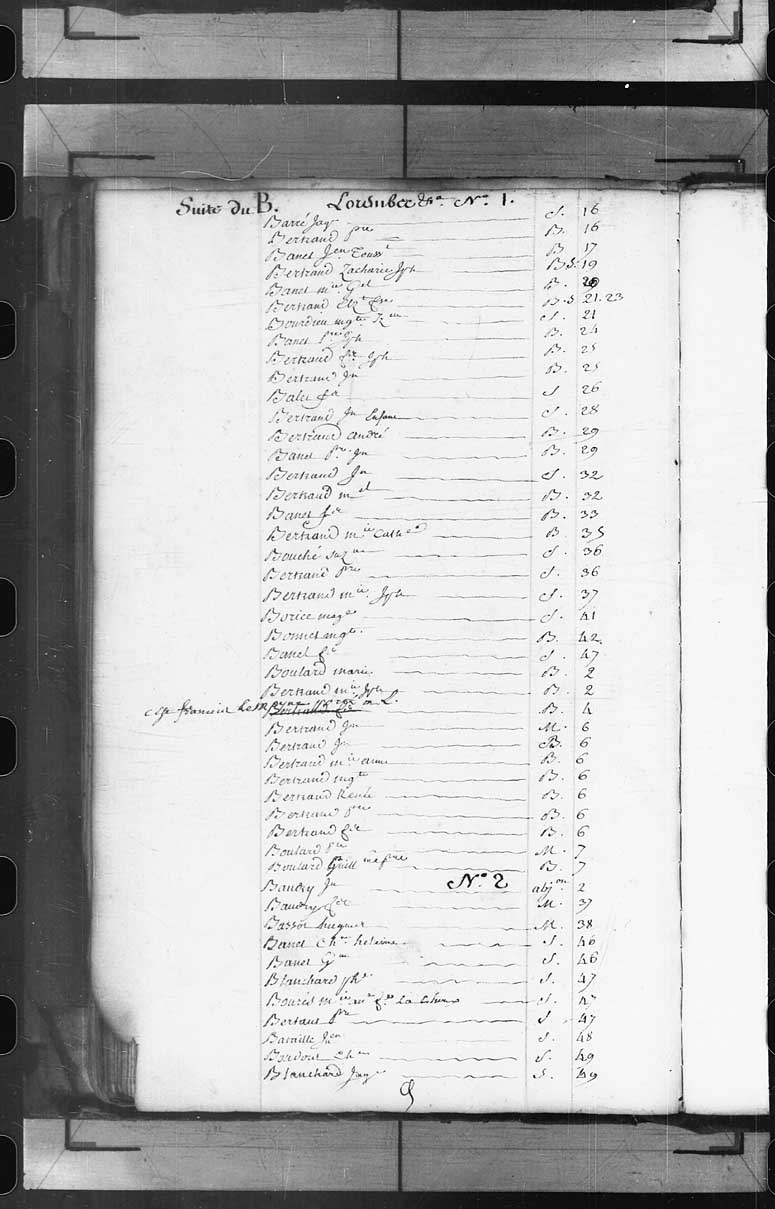 Suite du B. Lorembec &ra. No. 1.
Barré Jaqs S. 16
Bertrand pre B. 16
Banet Jen Touss B 17
Bertrand Zacharie Jph B S. 19
Banet mie Gel B. 20
Bertrand Elzt Ese B. S. 21. 23
Bourdieu mgte S. 21
Banet pre Jph B. 24
Bertrand fr Jph B. 25
Bertrand Jn B. 25
Balet fr S 26
Bertrand Jn Enfant S. 28
Bertrand André B. 29
Banet pre Jn B. 29
Bertrand Jn S. 32
Bertrand mel B. 32
Banet fse B. 33
Bertrand mie Cathe B 35
Bouché Suzne S. 36
Bertrand pre S. 36
Bertrand mie Jph S. 37
Borice mage S. 41
Bonnet mgte B. 42.
Banet fse S. 47
Boulard marie B. 2
Bertrand mie Jph B. 2
B. 4
Bertrand Jn M. 6
Bertrand Jn B. 6
Bertrand mie anne B. 6
Bertrand mgte B. 6
Bertrand Renée B. 6
Bertrand pre B. 6
Bertrand fse B. 6
Boulard fse M. 7
Boulard Guill me pre B. 7
No. 2
Baudry Jn abjon 2
Baudry fse M. 37
Bassot hugues M. 38
Banet Chne helaine S. 46
Banet Gme S. 46
Blanchard Jph S. 47
Bourés mie S. 47
Bertaut pre S 47
Bataille Jen S. 48
Bordout Chs S. 49
Blanchard Jaqe S. 49